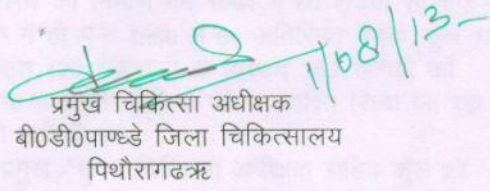 1/08/13-
प्रमुख चिकित्सा अधीक्षक
बी0डी0पाण्डे जिला चिकित्सालय
पिथौरागढऋ